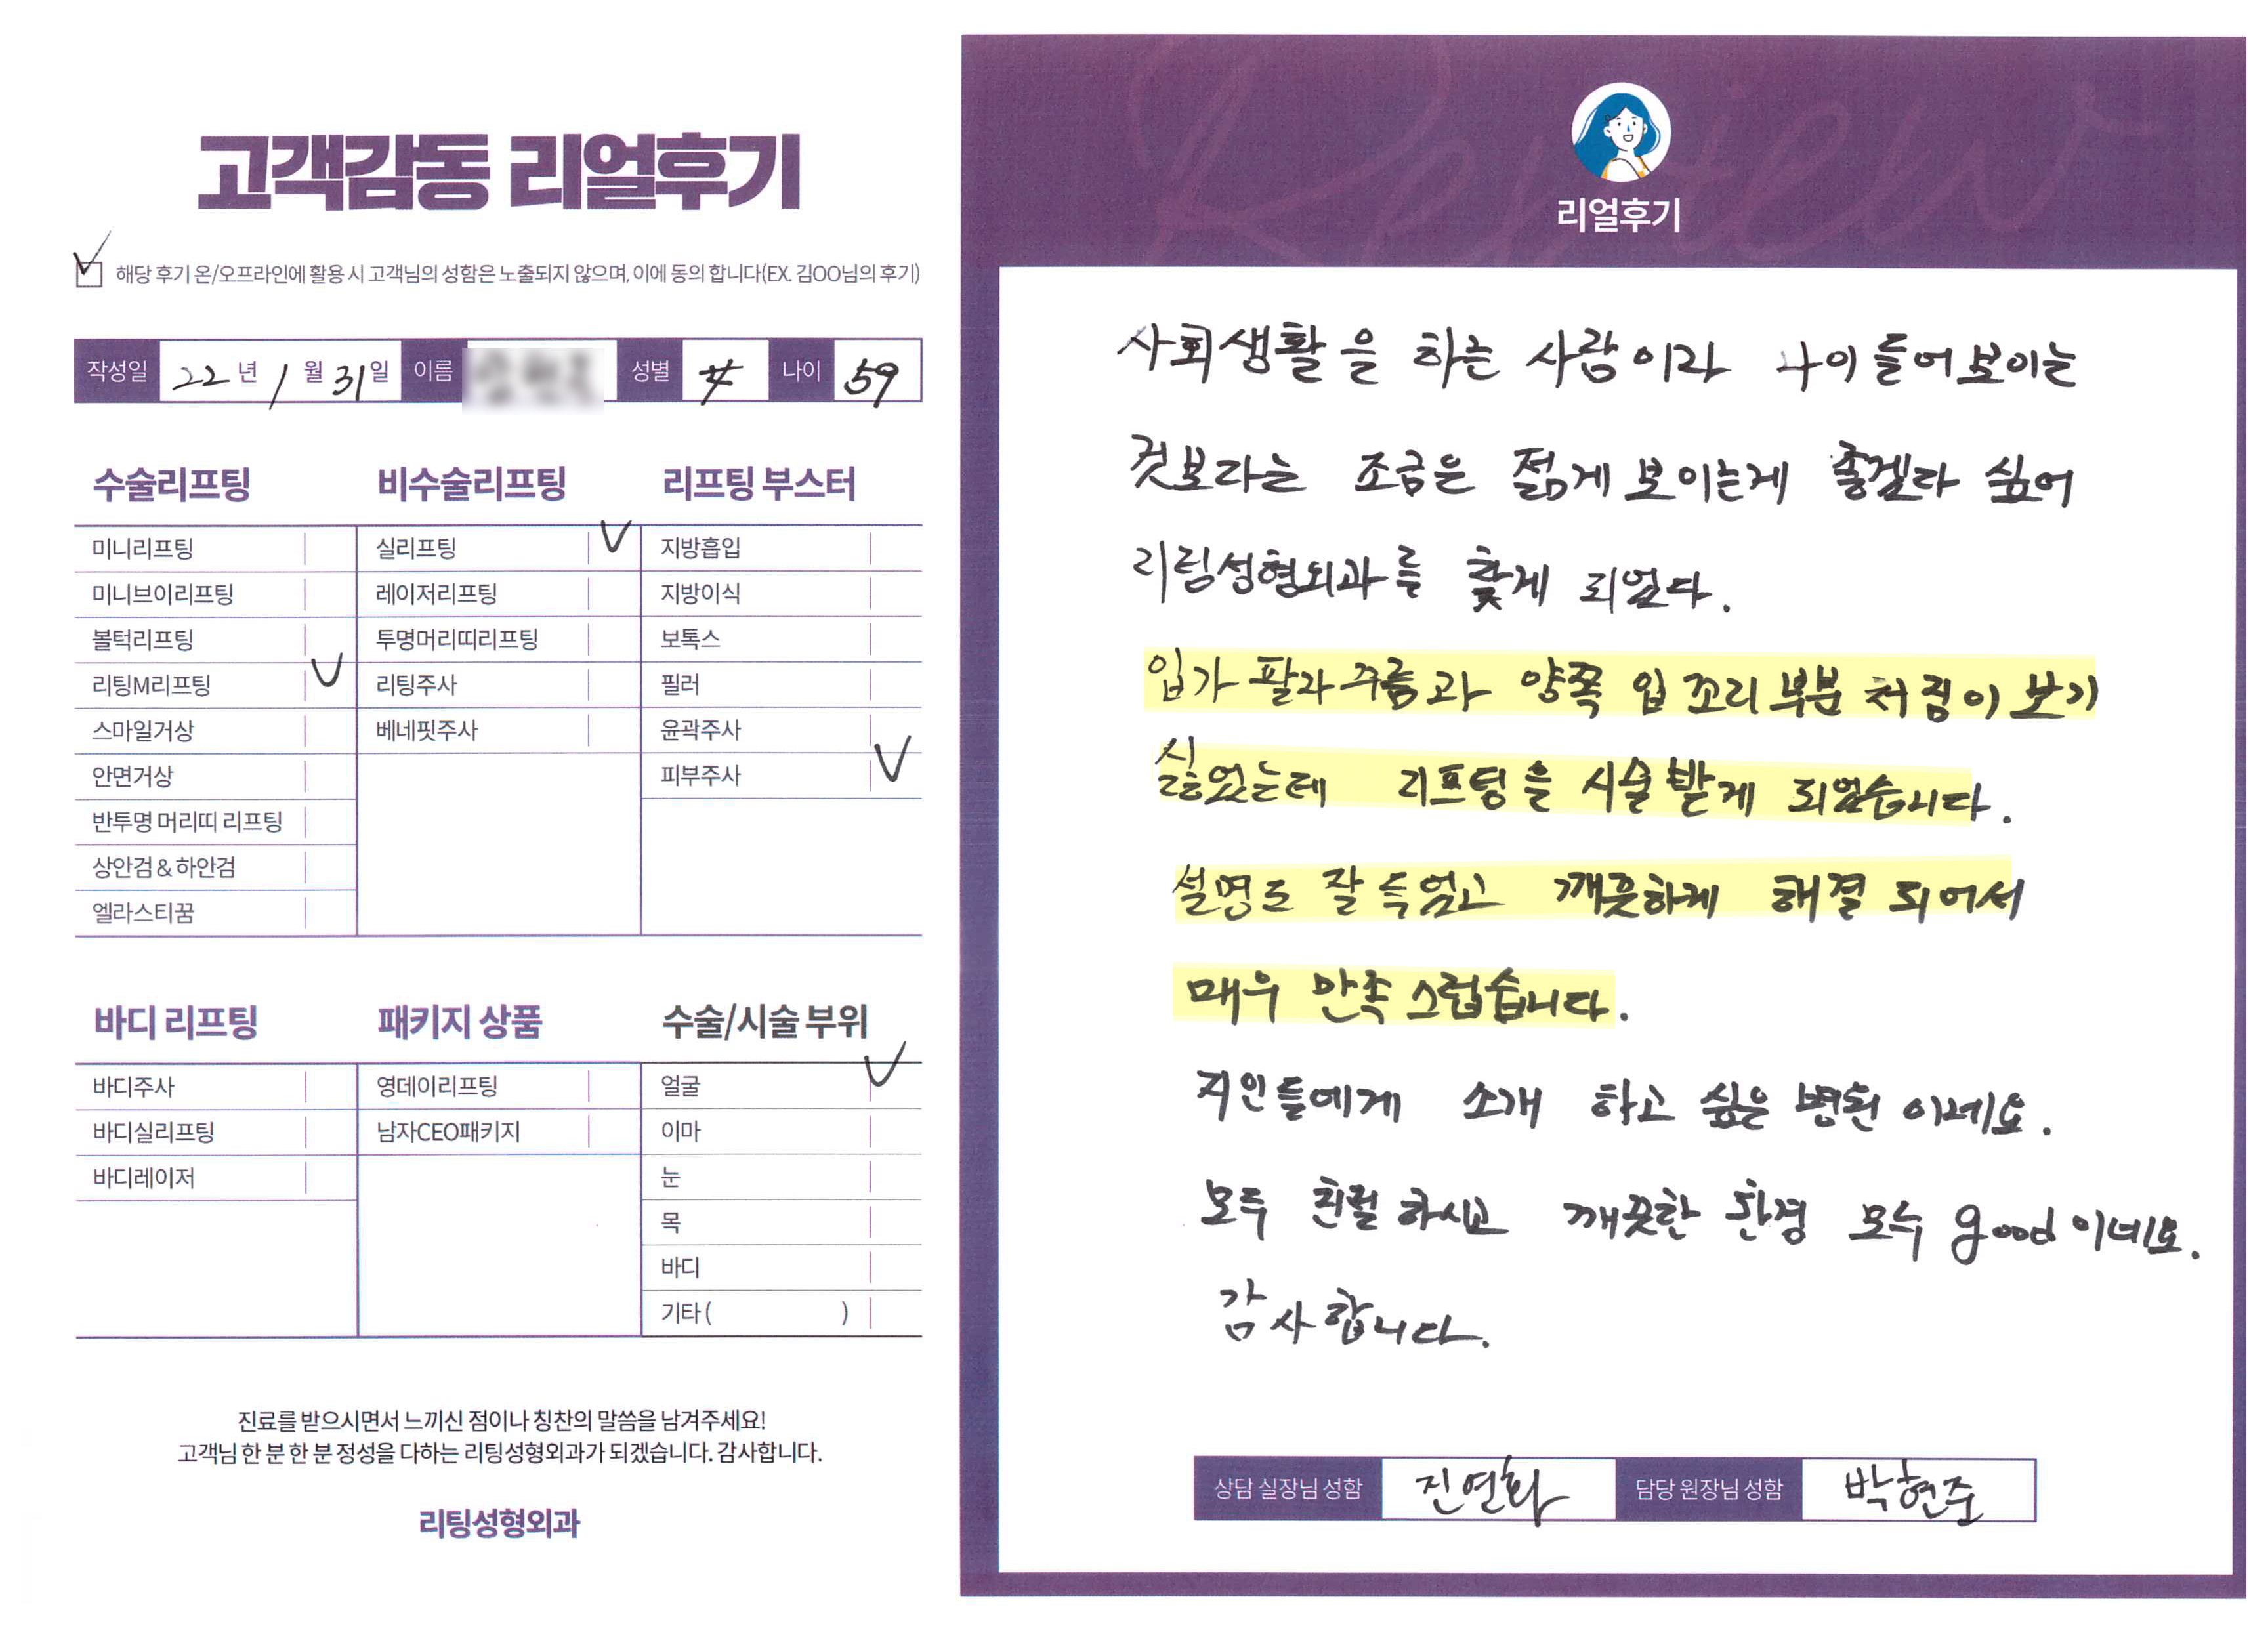 고객감동 리얼후기
해당 후기 온/오프라인에 활용 시 고객님의 성함은 노출되지 않으며, 이에 동의 합니다(EX. 김OO님의 후기)
작성일 22년 1월 31일 이름 성별 女 나이 59
수술리프팅
미니리프팅
미니브이리프팅
볼턱리프팅
리팅M리프팅
스마일거상
안면거상
반투명 머리띠 리프팅
상안검 & 하안검
엘라스티꿈
비수술리프팅
실리프팅
레이저리프팅
투명머리띠리프팅
리팅주사
베네핏주사
리프팅 부스터
지방흡입
지방이식
보톡스
필러
윤곽주사
피부주사
바디 리프팅
바디주사
바디실리프팅
바디레이저
패키지 상품
영데이리프팅
남자CEO패키지
수술/시술 부위
얼굴
이마
눈
목
바디
기타 ( )
진료를 받으시면서 느끼신 점이나 칭찬의 말씀을 남겨주세요!
고객님 한 분 한 분 정성을 다하는 리팅성형외과가 되겠습니다. 감사합니다.
리팅성형외과
Review
리얼후기
사회생활을 하는 사람이라 나이들어보이는
것보라는 조금은 젊게 보이는게 좋겠다 싶어
리팅성형외과를 찾게 되었다.
입가 팔자주름과 양쪽 입 꼬리부분 처짐이 보기
싫었는데 리프팅을 시술받게 되었습니다.
설명도 잘 듣었고 깨끗하게 해결 되어서
매우 만족스럽습니다.
지인들에게 소개 하고 싶은 병원 이네요.
모두 친절 하시고 깨끗한 환경 모두 good 이네요.
감사합니다.
상담 실장님 성함 진연화 담당 원장님 성함 박현준